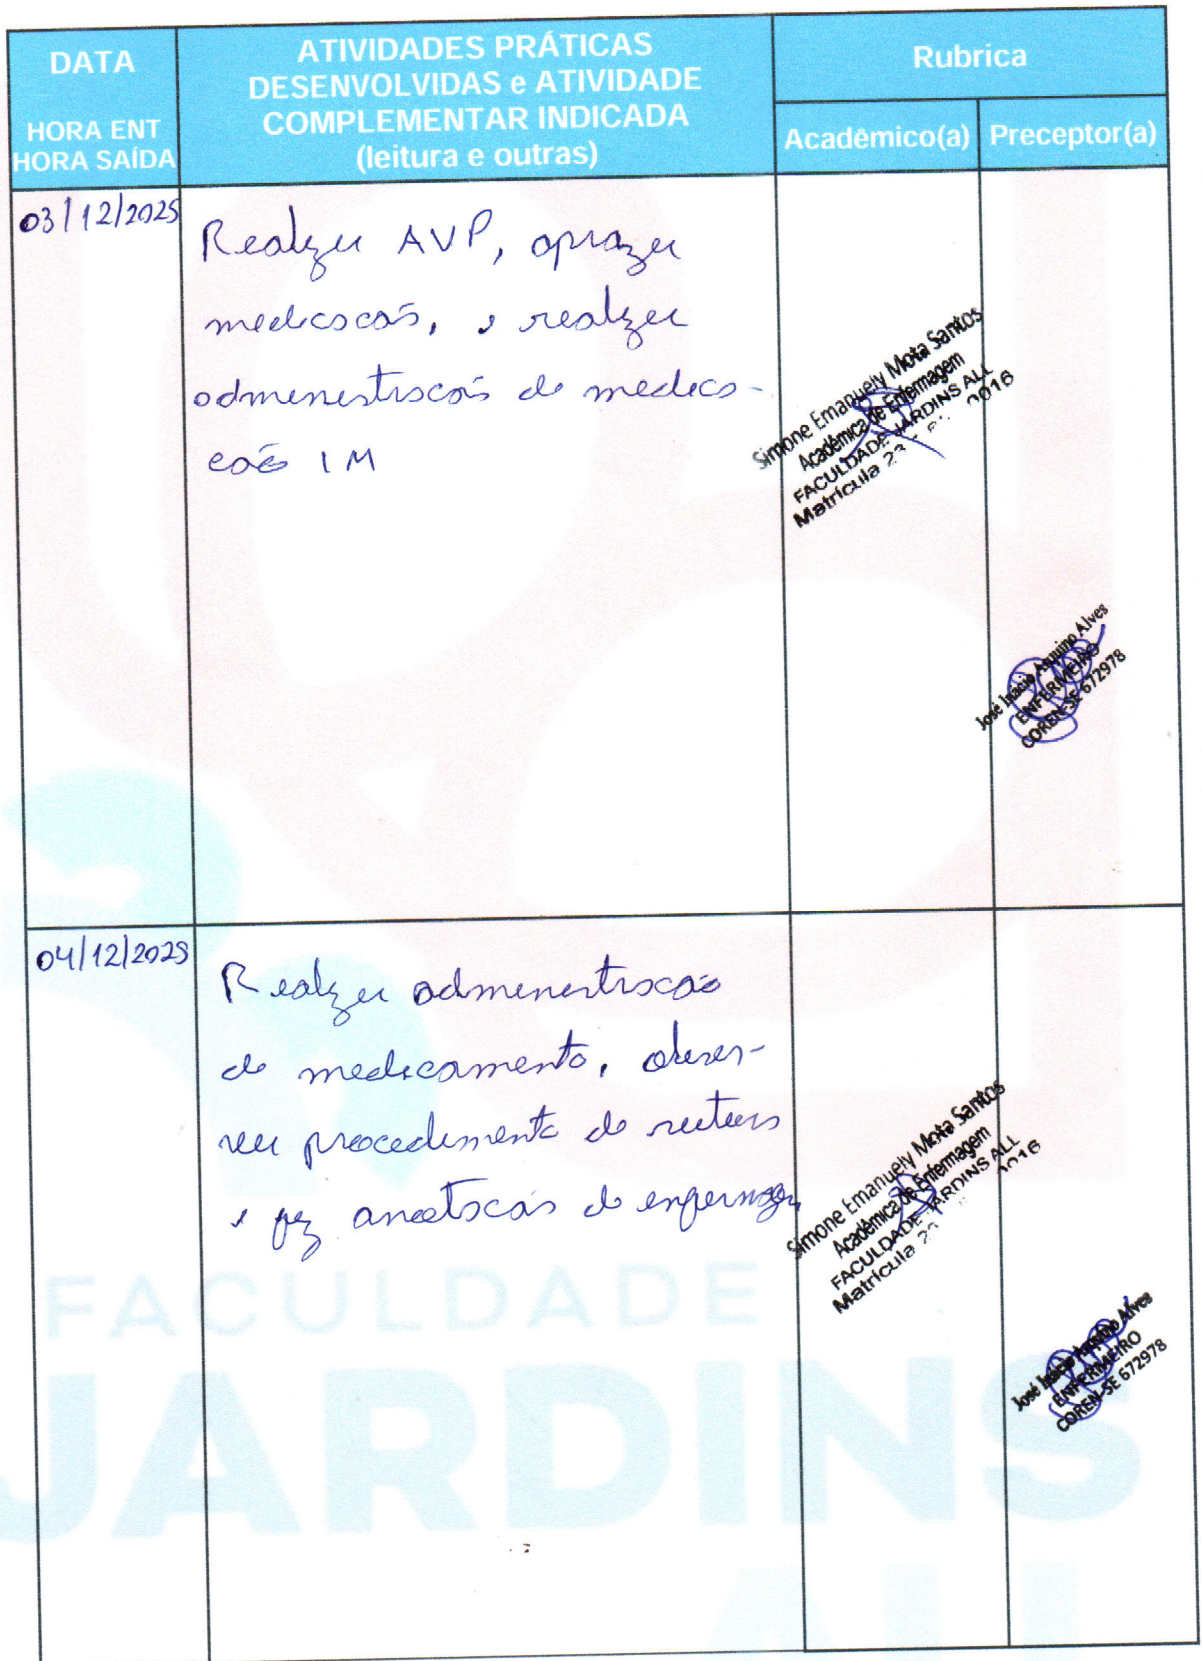 DATA
HORA ENT
HORA SAÍDA
ATIVIDADES PRÁTICAS
DESENVOLVIDAS e ATIVIDADE
COMPLEMENTAR INDICADA
(leitura e outras)
Rubrica
Acadêmico(a)
Preceptor(a)
03/12/2025
Realizei AVP, aprazei
medicação, e realizei
administração de medica-
ção IM
Simone Emanuely Mota Santos
Acadêmica de Enfermagem
FACULDADE JARDINS ALL
Matrícula 23
José Inácio Aquino Alves
ENFERMEIRO
COREN-SE 672978
04/12/2025
Realizei administração
de medicamento, obser-
vei procedimento de
e fiz anotação de enfermagem
Simone Emanuely Mota Santos
Acadêmica de Enfermagem
FACULDADE JARDINS ALL
Matrícula 23
José Inácio Aquino Alves
ENFERMEIRO
COREN-SE 672978
FACULDADE
JARDINS